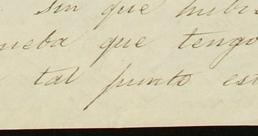 sin que hubi
ueba que tengo
tal punto est